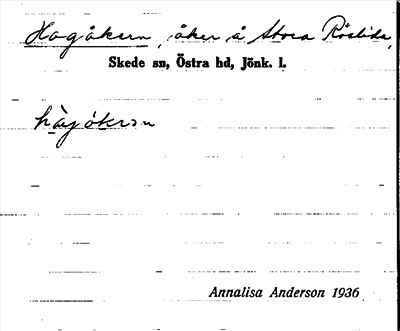 Hagåkern, åker å Stora Röslida,
Skede sn, Östra hd, Jönk. l.
hàgåkɘrn
Annalisa Anderson 1936